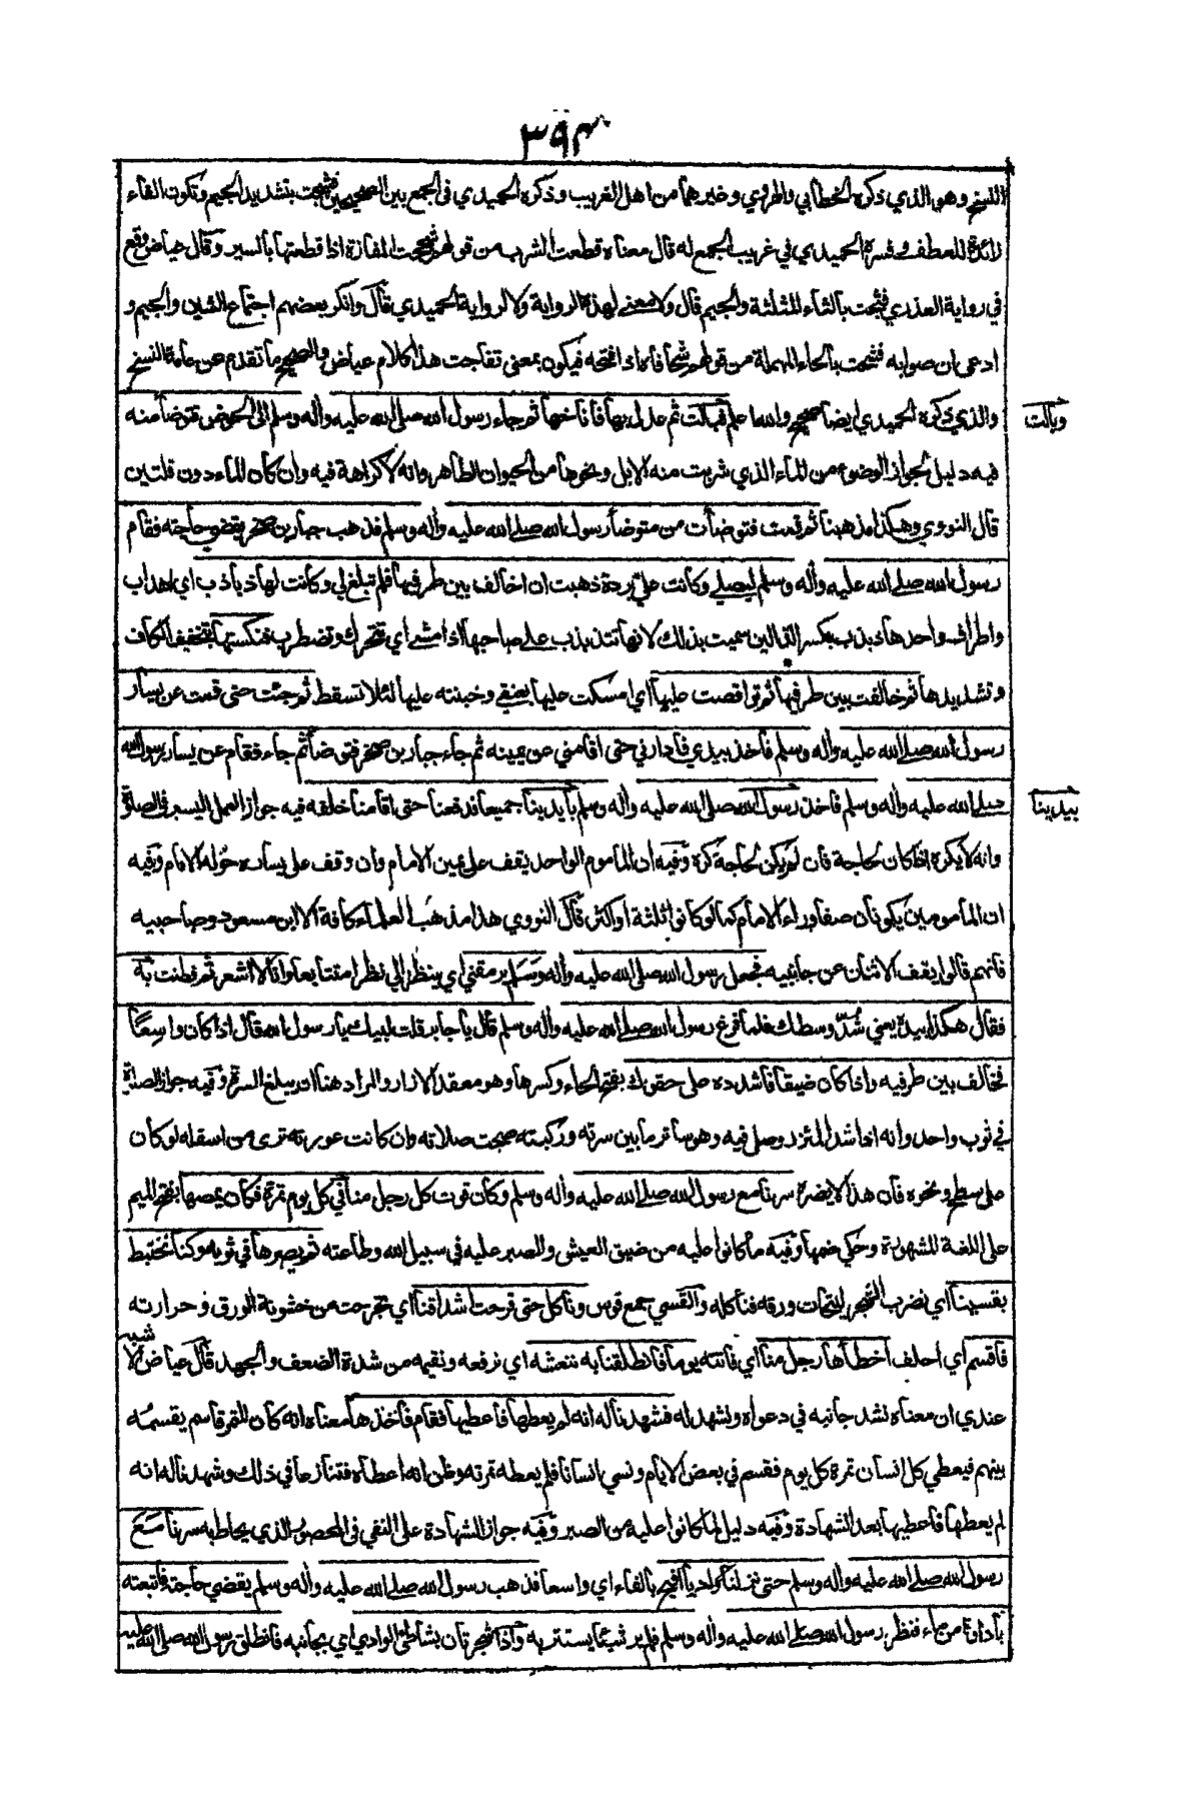 ٣٩٣
النسخ وهو الذي ذكره الخطابي والهروي وغيرهما من اهل الغريب وذكره الحميدي في الجمع بين الصحيحين فشجت بتشديد الجيم وتكون الفاء
زائدة للعطف وفسره الحميدي في غريب الجمع له قال معناه قطعت الشرب من قولهم شججت المفازة اذا قطعتها بالسير وقال عياض وقع
في رواية العذري فثجت بالثاء المثلثة والجيم قال ولا معنى لهذه الرواية ولا لرواية الحميدي قال وانكر بعضهم اجتماع الشين والجيم و
ادعى ان صوابه فشحت بالحاء المهملة من قولهم شحا فاه اذا فتحه فيكون بمعنى تفاجت هذا كلام عياض والصحيح ما تقدم عن عامة النسخ
والذي ذكره الحميدي ايضا صحيح والله اعلم فبالت ثم عدل بها فاناخها ثم جاء رسول الله صلى الله عليه واله وسلم الى الحوض فتوضأ منه
وبالت
فيه دليل لجواز الوضوء من الماء الذي شربت منه الابل ونحوها من الحيوان الطاهر وانه لا كراهة فيه وان كان الماء دون قلتين
قال النووي وهكذا مذهبنا ثم قمت فتوضأت من متوضأ رسول الله صلى الله عليه واله وسلم فذهب جبار بن صخر يقضي حاجته فقام
رسول الله صلى الله عليه واله وسلم ليصلي وكانت علي بردة ذهبت ان اخالف بين طرفيها فلم تبلغ لي وكانت لها ذباذب اي اهداب
واطراف واحدها ذبذب بكسر الذالين سميت بذلك لانها تتذبذب على صاحبها اذا مشى اي تتحرك وتضطرب فنكستها بتخفيف الكاف
وتشديدها ثم خالفت بين طرفيها ثم تواقصت عليها اي امسكت عليها بعنقي وخبنته عليها لئلا تسقط ثم جئت حتى قمت عن يسار
رسول الله صلى الله عليه واله وسلم فاخذ بيدي فادارني حتى اقامني عن يمينه ثم جاء جبار بن صخر فتوضأ ثم جاء فقام عن يسار رسول الله
صلى الله عليه واله وسلم فاخذ رسول الله صلى الله عليه واله وسلم بايدينا جميعا فدفعنا حتى اقامنا خلفه فيه جواز العمل اليسير في الصلوة
بيدينا
وانه لا يكره اذا كان لحاجة فان لم يكن لحاجة كره وفيه ان المأموم الواحد يقف على يمين الامام وان وقف على يساره حوله الامام وفيه
ان المأمومين يكونان صفا وراء الامام كما لو كانوا ثلثة او اكثر قال النووي هذا مذهب العلماء كافة الا ابن مسعود وصاحبيه
فانهم قالوا يقف الاثنان عن جانبيه فجعل رسول الله صلى الله عليه واله وسلم يرمقني اي ينظر الي نظرا متتابعا وانا لا اشعر ثم فطنت به
فقال هكذا بيده يعني شد وسطك فلما فرغ رسول الله صلى الله عليه واله وسلم قال يا جابر قلت لبيك يا رسول الله قال اذا كان واسعا
فخالف بين طرفيه واذا كان ضيقا فاشدده على حقوك بفتح الحاء وكسرها وهو معقد الازار والمراد هنا ان يبلغ السرة وفيه جواز الصلوة
في ثوب واحد وانه اذا شد المئزر وصلى فيه وهو ساتر ما بين سرته وركبته صحت صلاته وان كانت عورته ترى من اسفله لو كان
على سطح ونحوه فان هذا لا يضره سرنا مع رسول الله صلى الله عليه واله وسلم وكان قوت كل رجل منا في كل يوم تمرة فكان يمصها بفتح الميم
على اللغة المشهورة وحكي ضمها وفيه ما كانوا عليه من ضيق العيش والصبر عليه في سبيل الله وطاعته ثم يصرها في ثوبه وكنا نختبط
بقسينا اي نضرب الشجر ليتحات ورقه فنأكله والقسي جمع قوس ونأكل حتى قرحت اشداقنا اي تجرحت من خشونة الورق وحرارته
فاقسم اي احلف اخطأها رجل منا اي فاتته يوما فانطلقنا به ننعشه اي نرفعه ونقيمه من شدة الضعف والجهد قال عياض الاشبه
عندي ان معناه نشد جانبه في دعواه ونشهد له فشهدنا له انه لم يعطها فاعطيها فقام فاخذها معناه انه كان للتمر قاسم يقسمه
بينهم فيعطي كل انسان تمرة كل يوم فقسم في بعض الايام ونسي انسانا فلم يعطه تمرته وظن انه اعطاه فتنازعا في ذلك وشهدنا له انه
لم يعطها فاعطيها بعد الشهادة وفيه دليل لما كانوا عليه من الصبر وفيه جواز الشهادة على النفي في المحصور الذي يحاط به سرنا مع
رسول الله صلى الله عليه واله وسلم حتى نزلنا واديا افيح بالفاء اي واسعا فذهب رسول الله صلى الله عليه واله وسلم يقضي حاجته فاتبعته
باداوة من ماء فنظر رسول الله صلى الله عليه واله وسلم فلم ير شيئا يستتر به واذا شجرتان بشاطئ الوادي اي بجانبه فانطلق رسول الله صلى الله عليه